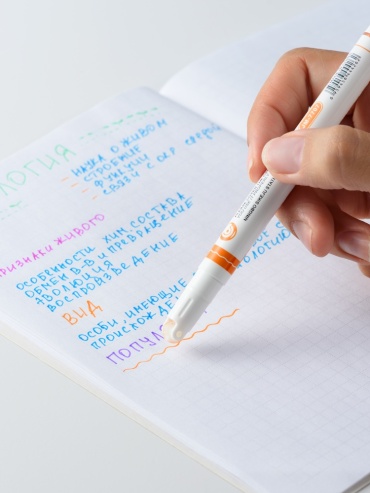 ЛОГИЯ
НАУКА О ЖИВОМ
– СТРОЕНИЕ
– ФУНКЦИИ
– СВЯЗИ С ОКР. СРЕДОЙ
ПРИЗНАКИ ЖИВОГО
ОСОБЕННОСТИ ХИМ. СОСТАВА
ОБМЕН В-В И ПРЕВРАЩЕНИЕ
ЭВОЛЮЦИЯ
ВОСПРОИЗВЕДЕНИЕ
ВИД
ОСОБИ, ИМЕЮЩИЕ
ПРОИСХОЖДЕ
ПОПУЛ